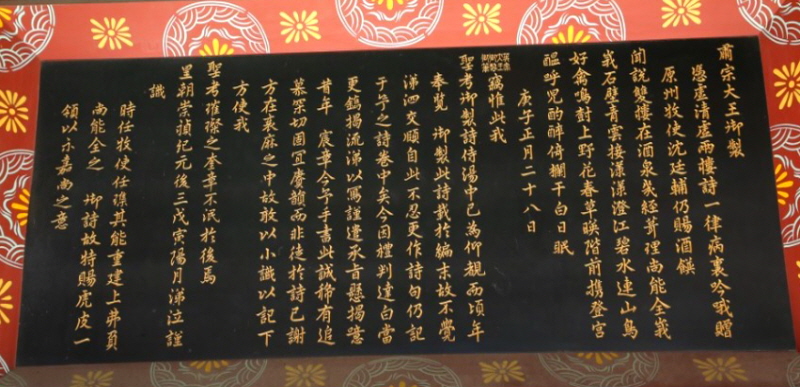 肅宗大王御製
憑虛清虛兩樓詩一律病裏吟哦贈
原州牧使沈廷輔仍賜酒饌
聞說雙樓在酒泉幾經葺裡尚能全峩
峩石壁青雲接漾漾澄江碧水連山鳥
好禽鳴樹上野花春草暎階前携登官
醞呼兒酌醉倚欄干白日眠
庚子正月二十八日
竊惟此我
聖考御製詩侍湯中已爲仰覩而頃年
奉覽 御製此詩載於編末故不覺
涕泗交頤自此不忍更作詩句仍記
于予之詩卷中矣今因禮判達白當
更鐫揭流涕以寫謹遣承旨懸揭噫
昔年 宸章今予手書此誠稀有追
慕冞切固宜賡韻而非徒於詩已謝
方在衰麻之中故敢以小識以記下
方使我
聖考璀璨之奎章不泯於後焉
皇朝崇禎紀元後三戊寅陽月涕泣謹
識
時任牧使任㵛其能重建上弗負
尚能全之 御詩故特賜虎皮一
領以示嘉尚之意